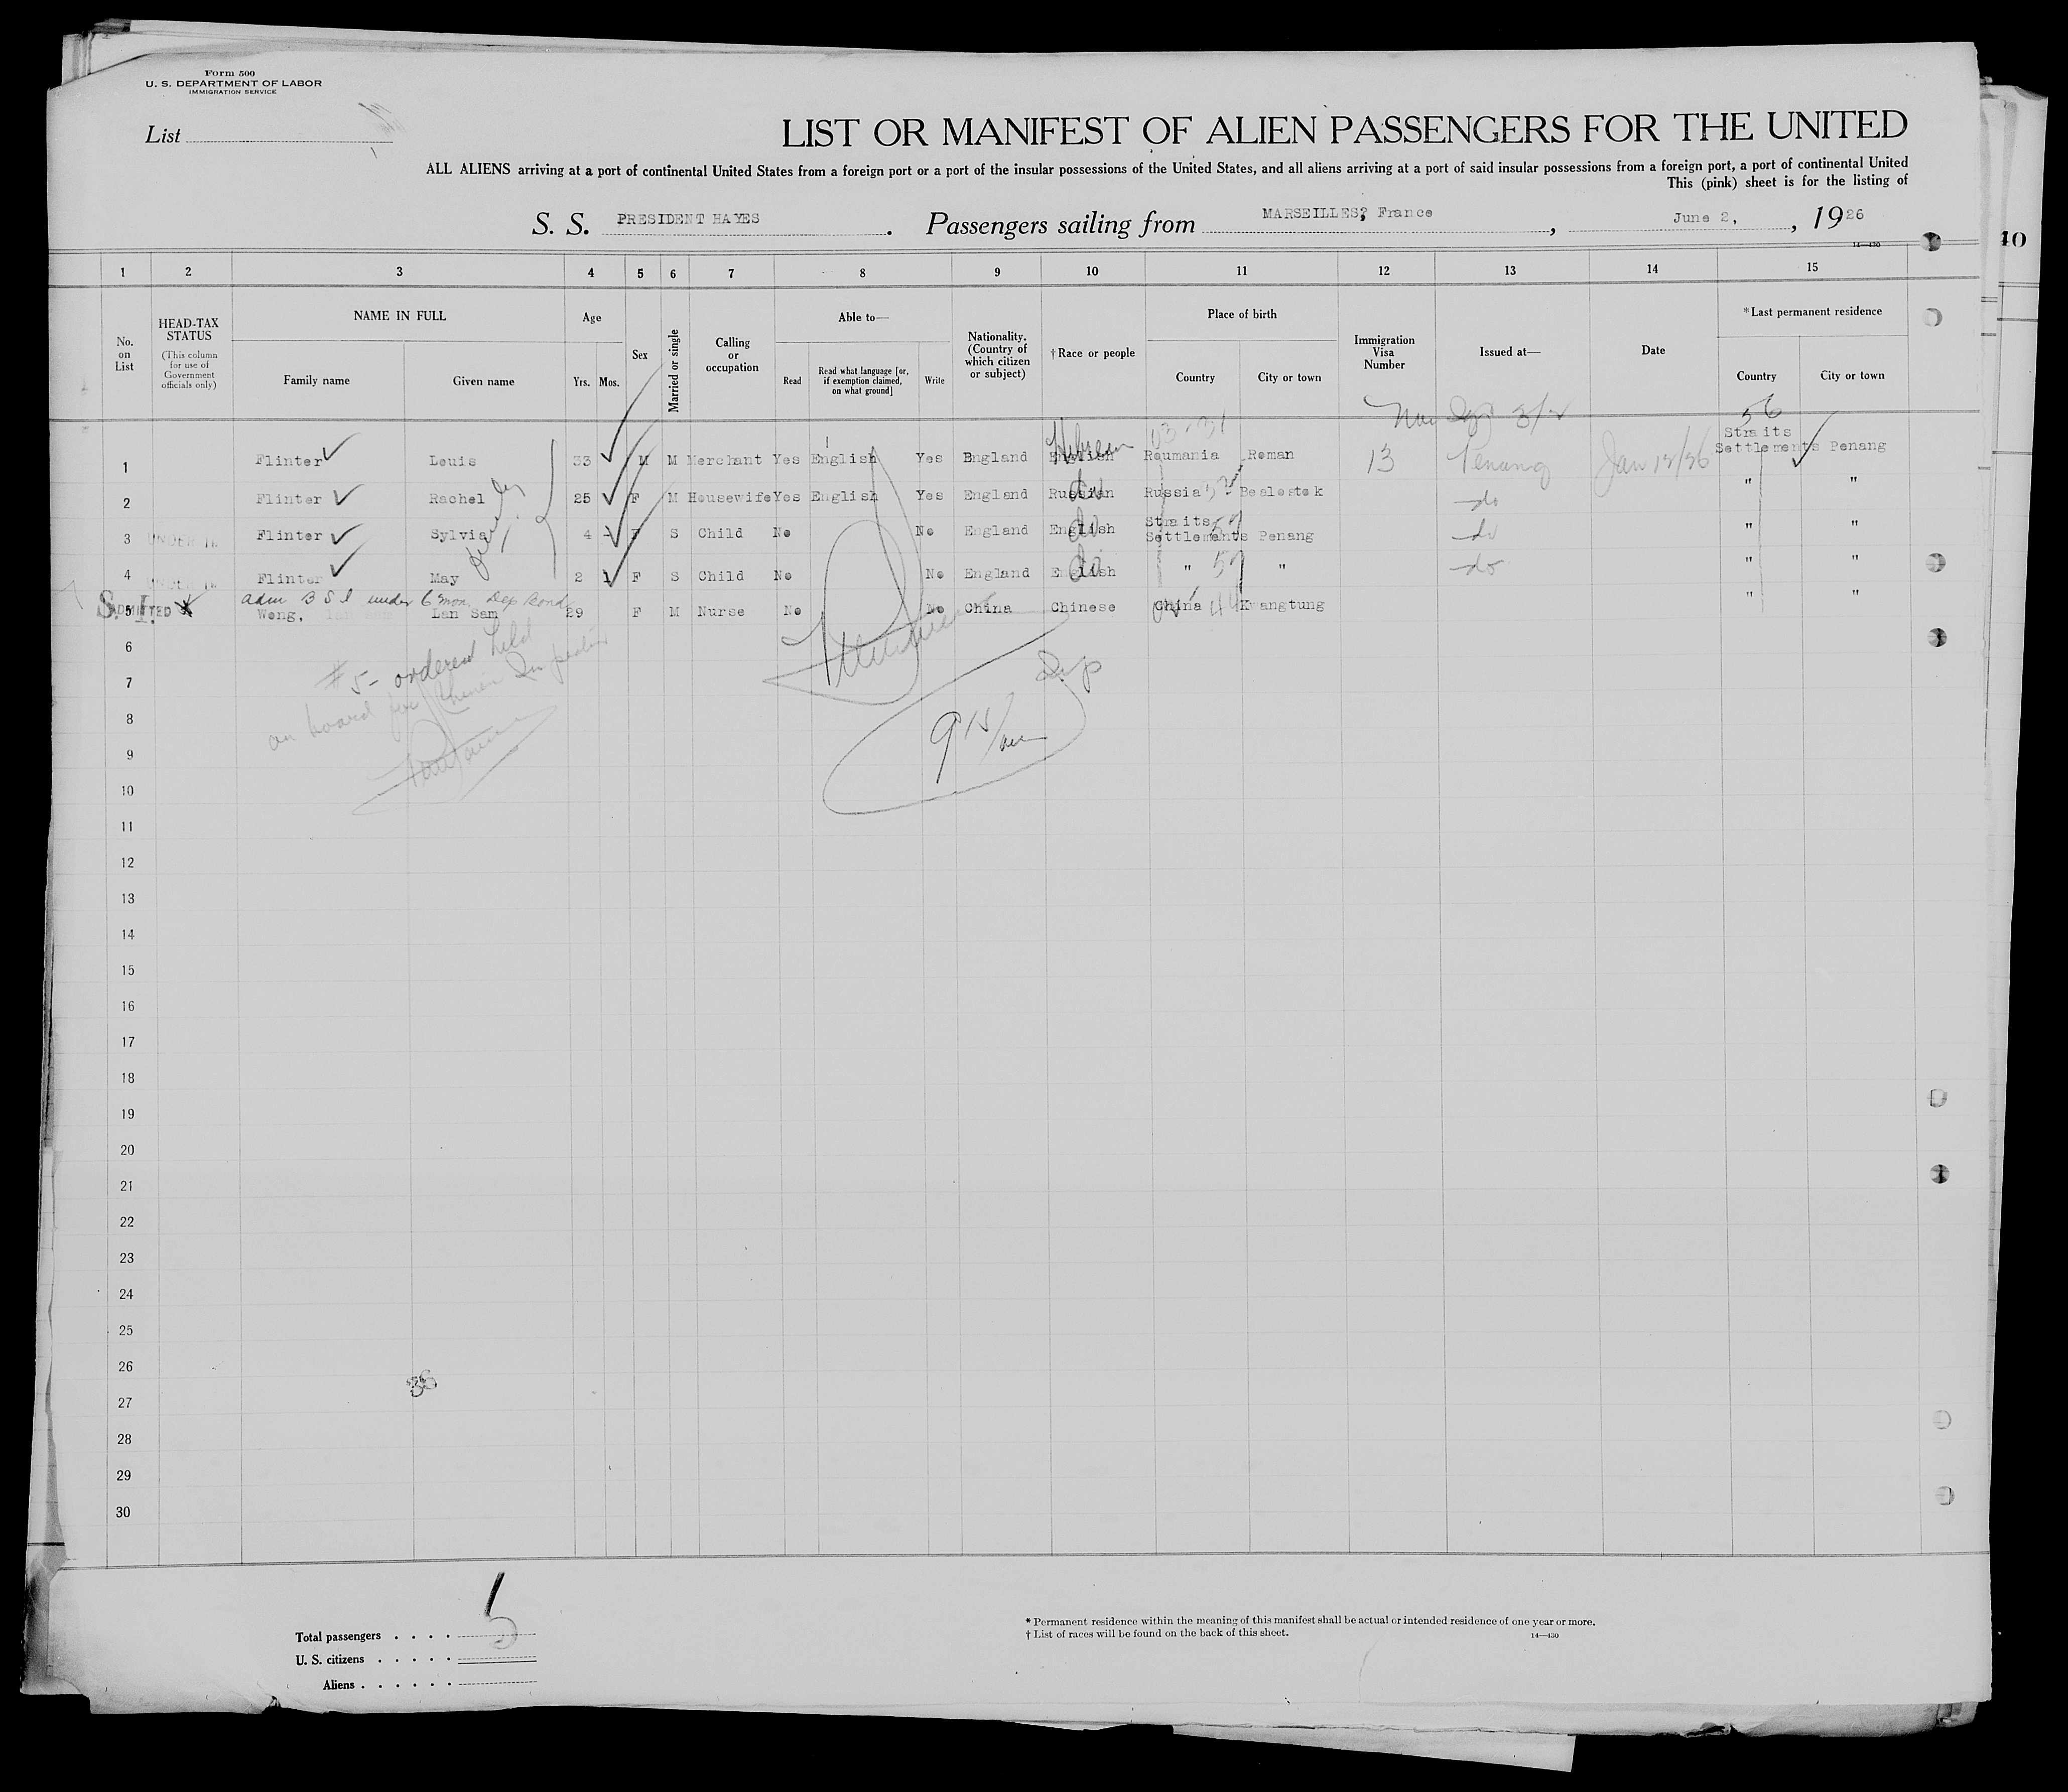 Form 500
U. S. DEPARTMENT OF LABOR
IMMIGRATION SERVICE
List
LIST OR MANIFEST OF ALIEN PASSENGERS FOR THE UNITED
ALL ALIENS arriving at a port of continental United States from a foreign port or a port of the insular possessions of the United States, and all aliens arriving at a port of said insular possessions from a foreign port, a port of continental United
This (pink) sheet is for the listing of
S. S. PRESIDENT HAYES. Passengers sailing from MARSEILLES, France, June 2, , 1926
14—430
40
1 2 3 4 5 6 7 8 9 10 11 12 13 14 15
No. on List
HEAD-TAX STATUS
(This column for use of Government officials only)
NAME IN FULL
Family name Given name
Age
Yrs. Mos.
Sex
Married or single
Calling or occupation
Able to—
Read
Read what language [or, if exemption claimed, on what ground]
Write
Nationality. (Country of which citizen or subject)
†Race or people
Place of birth
Country City or town
Immigration Visa Number
Issued at—
Date
*Last permanent residence
Country City or town
56
1 Flinter Louis 33 M M Merchant Yes English Yes England English Hebrew Roumania Roman 13 Penang Jan 12/26 Straits Settlements Penang
2 Flinter Rachel 25 F M Housewife Yes English Yes England Russian do Russia Bealostok do " "
3 UNDER Flinter Sylvia 4 F S Child No No England English do Straits Settlements Penang do " "
4 UNDER Flinter May 2 F S Child No No England English do " " do " "
adm B S I under 6 mon. Dep Bond
S. I.
ADMITTED
5 Wong, Lan Sam 29 F M Nurse No No China Chinese China Kwangtung " "
6
#5- ordered held
on board for Chinese Inspection
7
8
9
915/am
10
11
12
13
14
15
16
17
18
19
20
21
22
23
24
25
26
36
27
28
29
30
Total passengers . . . . 5
U. S. citizens . . . . .
Aliens . . . . . .
* Permanent residence within the meaning of this manifest shall be actual or intended residence of one year or more.
† List of races will be found on the back of this sheet.
14—430